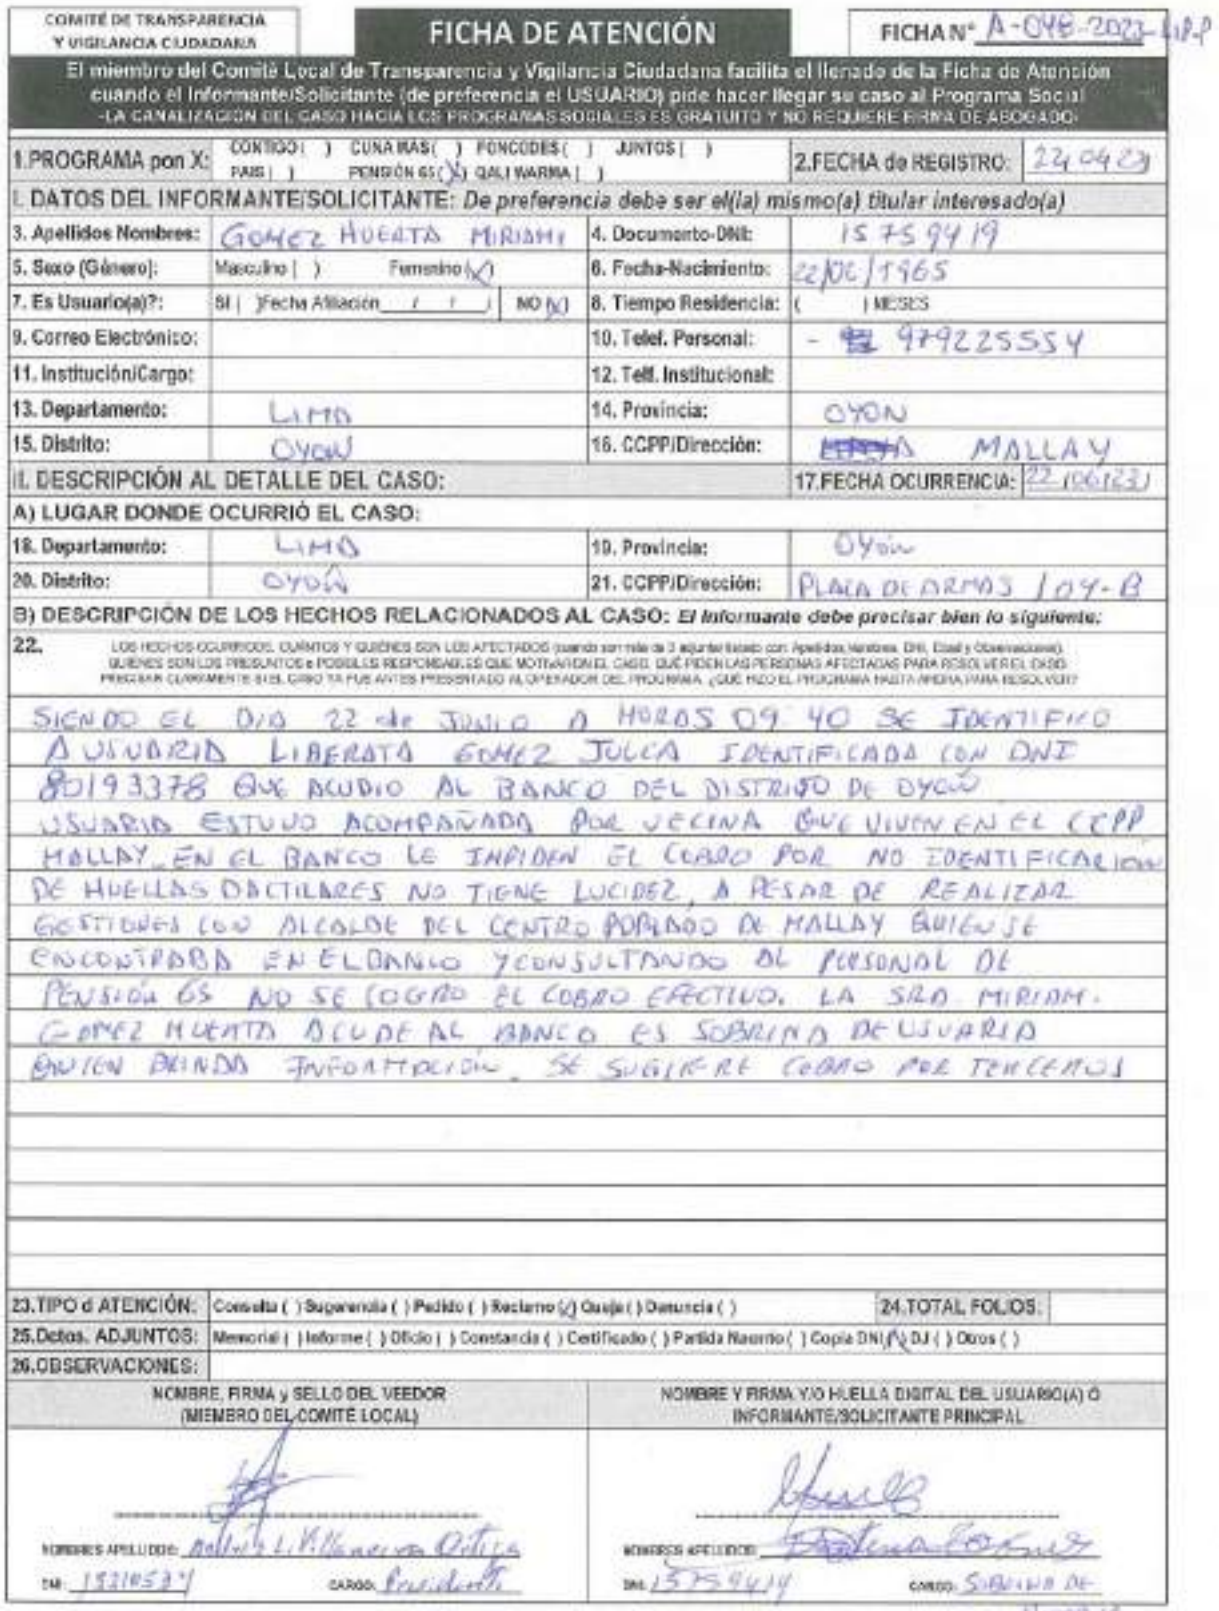 COMITÉ DE TRANSPARENCIA
Y VIGILANCIA CIUDADANA
FICHA DE ATENCIÓN
FICHA N° A-048-2023-LIP-P
El miembro del Comité Local de Transparencia y Vigilancia Ciudadana facilita el llenado de la Ficha de Atención
cuando el Informante/Solicitante (de preferencia el USUARIO) pide hacer llegar su caso al Programa Social
-LA CANALIZACIÓN DEL CASO HACIA LOS PROGRAMAS SOCIALES ES GRATUITO Y NO REQUIERE FIRMA DE ABOGADO-
1.PROGRAMA pon X: CONTIGO( ) CUNA MAS( ) FONCODES( ) JUNTOS( )
PAIS( ) PENSIÓN 65(X) QALI WARMA( )
2.FECHA de REGISTRO:
I. DATOS DEL INFORMANTE/SOLICITANTE: De preferencia debe ser el(la) mismo(a) titular interesado(a)
3. Apellidos Nombres: GOMEZ HUERTA MIRIAM 4. Documento-DNI: 15759419
5. Sexo (Género): Masculino ( ) Femenino (X) 6. Fecha-Nacimiento:
7. Es Usuario(a)?: SI ( )Fecha Afiliación / / NO (X) 8. Tiempo Residencia: ( ) MESES
9. Correo Electrónico: 10. Telef. Personal: - 979225554
11. Institución/Cargo: 12. Telf. Institucional:
13. Departamento: LIMA 14. Provincia: OYON
15. Distrito: OYON 16. CCPP/Dirección: MALLAY
II. DESCRIPCIÓN AL DETALLE DEL CASO: 17.FECHA OCURRENCIA: 22/06/23
A) LUGAR DONDE OCURRIÓ EL CASO:
18. Departamento: LIMA 19. Provincia: OYON
20. Distrito: OYON 21. CCPP/Dirección: PLACA DE ARMAS 104-B
B) DESCRIPCIÓN DE LOS HECHOS RELACIONADOS AL CASO: El Informante debe precisar bien lo siguiente:
22. LOS HECHOS OCURRIDOS, CUÁNTOS Y QUIÉNES SON LOS AFECTADOS (cuando son más de 3 adjuntar listado con: Apellidos, Nombres, DNI, Edad y Observaciones).
QUIÉNES SON LOS PRESUNTOS o POSIBLES RESPONSABLES QUE MOTIVARON EL CASO, QUÉ PIDEN LAS PERSONAS AFECTADAS PARA RESOLVER EL CASO
PRECISAR CLARAMENTE SI EL CASO YA FUE ANTES PRESENTADO AL OPERADOR DEL PROGRAMA. ¿QUÉ HIZO EL PROGRAMA HASTA AHORA PARA RESOLVER?
SIENDO EL DIA 22 de JUNIO A HORAS 09 40 SE IDENTIFICO
A USUARIA LIBERATA GOMEZ JULCA IDENTIFICADA CON DNI
80193378 QUE ACUDIO AL BANCO DEL DISTRITO DE OYON
USUARIA ESTUVO ACOMPAÑADA POR VECINA QUE VIVEN EN EL CCPP
MALLAY. EN EL BANCO LE IMPIDEN EL COBRO POR NO IDENTIFICACION
DE HUELLAS DACTILARES NO TIENE LUCIDEZ, A PESAR DE REALIZAR
GESTIONES CON ALCALDE DEL CENTRO POBLADO DE MALLAY QUIEN SE
ENCONTRABA EN EL BANCO Y CONSULTANDO AL PERSONAL DE
PENSIÓN 65 NO SE LOGRO EL COBRO EFECTIVO. LA SRA. MIRIAM.
GOMEZ HUERTA ACUDE AL BANCO ES SOBRINA DE USUARIA
QUIEN BRINDA INFORMACIÓN. SE SUGIERE COBRO POR TERCEROS
23.TIPO d ATENCIÓN: Consulta ( ) Sugerencia ( ) Pedido ( ) Reclamo (X) Queja ( ) Denuncia ( ) 24.TOTAL FOLIOS:
25.Dctos. ADJUNTOS: Memorial ( ) Informe ( ) Oficio ( ) Constancia ( ) Certificado ( ) Partida Nacmto ( ) Copia DNI (X) DJ ( ) Otros ( )
26.OBSERVACIONES:
NOMBRE, FIRMA y SELLO DEL VEEDOR
(MIEMBRO DEL COMITÉ LOCAL)
NOMBRE Y FIRMA Y/O HUELLA DIGITAL DEL USUARIO(A) Ó
INFORMANTE/SOLICITANTE PRINCIPAL
NOMBRES APELLIDOS: Villanueva Ortiga NOMBRES APELLIDOS:
DNI: CARGO: Presidente DNI: 15759419 CARGO: SOBRINA DE